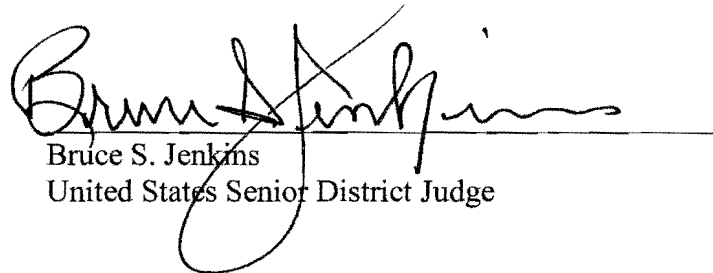 Bruce S. Jenkins
Bruce S. Jenkins
United States Senior District Judge